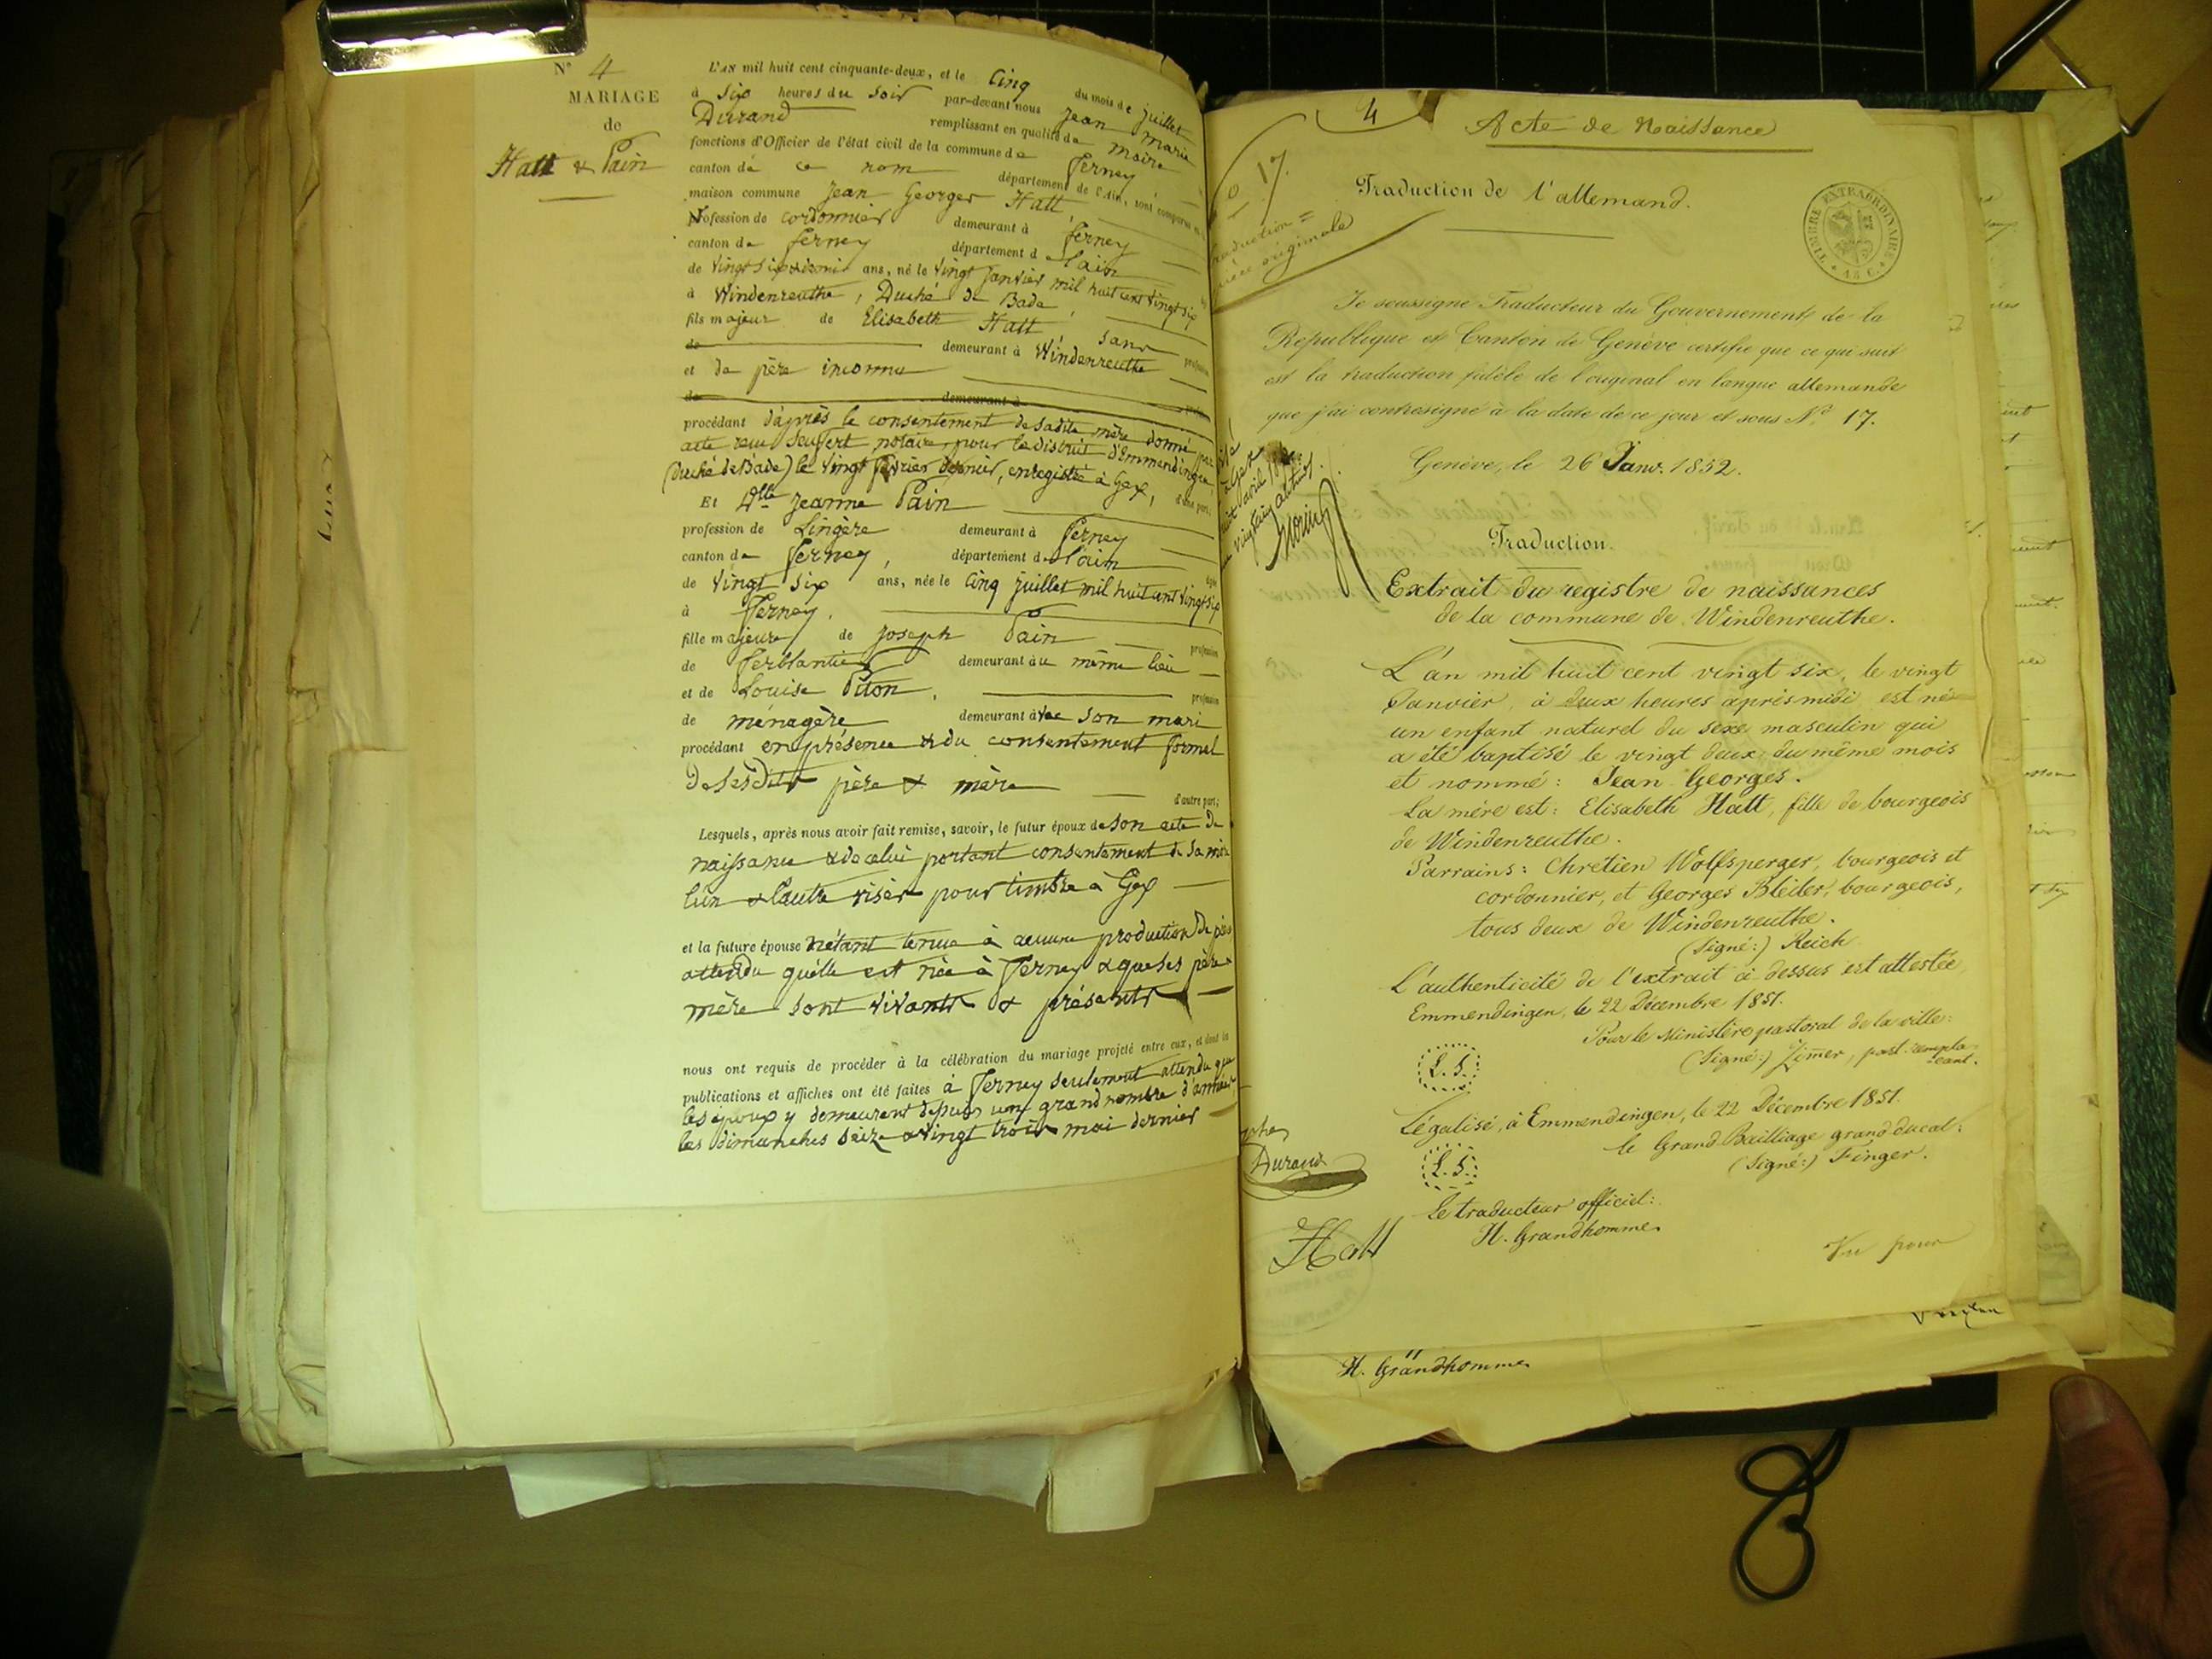 N° 4
MARIAGE
de
Hatt & Pain
L'AN mil huit cent cinquante-deux, et le Cinq du mois de juillet
à six heures du soir par-devant nous Jean Marie
Durand remplissant en qualité de maire
fonctions d'Officier de l'état civil de la commune de Ferney,
canton de ce nom département de l'Ain, sont comparus
maison commune Jean Georges Hatt,
Profession de cordonnier demeurant à Ferney
canton de Ferney département de l'ain
de vingt six & demi ans, né le vingt janvier mil huit cent vingt six
à Windenreuthe, Duché de Bade,
fils majeur de Elisabeth Hatt, sans profession
de demeurant à Windenreuthe
et de père inconnu
de demeurant à
procédant d'après le consentement de sadite mère donné par
acte reçu Seufert notaire pour le district d'Emmendingen
(Duché de Bade) le vingt février dernier, enregistré à Gex, d'une part;
Et Dlle Jeanne Pain
profession de Lingère demeurant à Ferney
canton de Ferney, département de l'ain
de vingt six ans, née le cinq juillet mil huit cent vingt six
à Ferney.
fille majeure de Joseph Pain profession
de Ferblantier demeurant au même lieu
et de Louise Piton, profession
de ménagère demeurant avec son mari
procédant en présence & du consentement formel
de sesdits père & mère d'autre part;
Lesquels, après nous avoir fait remise, savoir, le futur époux de son acte de
naissance & de celui portant consentement de sa mère
l'un & l'autre visés pour timbre à Gex
et la future épouse n'étant tenue à aucune production de pièces
attendu qu'elle est née à Ferney & que ses père &
mère sont vivants & présents
nous ont requis de procéder à la célébration du mariage projeté entre eux, et dont les
publications et affiches ont été faites à Ferney seulement attendu que
les époux y demeurent depuis un grand nombre d'années
les dimanches seize & vingt trois mai dernier
4
Acte de Naissance
17
Traduction =
pièce originale
Traduction de l'allemand.
TIMBRE EXTRAORDINAIRE
Je soussigné Traducteur du Gouvernement de la
République et Canton de Genève certifie que ce qui suit
est la traduction fidèle de l'original en langue allemande
que j'ai contresigné à la date de ce jour et sous N° 17.
Genève, le 26 Janv. 1852.
Traduction.
Extrait du registre de naissances
de la commune de Windenreuthe.
L'an mil huit cent vingt six, le vingt
Janvier, à deux heures après midi est né
un enfant naturel du sexe masculin qui
a été baptisé le vingt deux du même mois
et nommé: Jean Georges.
La mère est: Elisabeth Hatt, fille de bourgeois
de Windenreuthe.
Parrains: Chrétien Wolfsperger, bourgeois et
cordonnier, et Georges Bleiler, bourgeois,
tous deux de Windenreuthe.
(Signé:) Reich
L'authenticité de l'extrait ci dessus est attestée,
Emmendingen, le 22 Décembre 1851.
Pour le Ministère pastoral de la ville:
(Signé:) Zimer, past. remplaçant.
L. S.
Légalisé, à Emmendingen, le 22 Décembre 1851.
le Grand Bailliage grand ducal:
(Signé:) Finger.
L. S.
Le traducteur officiel:
H. Grandhomme
Vu pour
Durand
Hatt
H. Grandhomme